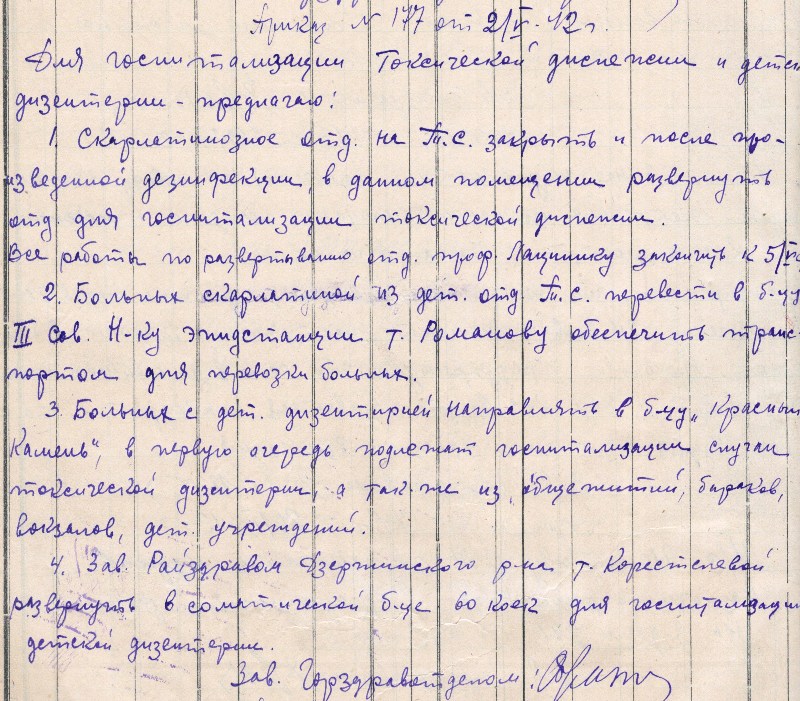 Приказ № 177 от 2/VI-42 г.
Для госпитализации Токсической диспепсии и детск
дизентерии - предлагаю:
1. Скарлатинозное отд. на Т.С. закрыть и после про-
изведенной дезинфекции, в данном помещении развернуть
отд. для госпитализации токсической диспепсии.
Все работы по развертыванию отд. проф. закончить к 5/VI
2. Больных скарлатиной из дет. отд. Т.С. перевести в б-цу
III Сов. Н-ку эпидстанции т. Романову обеспечить транс-
портом для перевозки больных.
3. Больных с дет. дизентирией направлять в б-цу „Красный
Камень", в первую очередь подлежат госпитализации случаи
токсической дизентерии, а так-же из общежитий, бараков,
вокзалов, дет. учреждений.
4. Зав. Райздравом Дзержинского р-на т. Коростелевой
развернуть в соматической б-це 60 коек для госпитализации
детской дизентерии.
Зав. Горздравотделом: